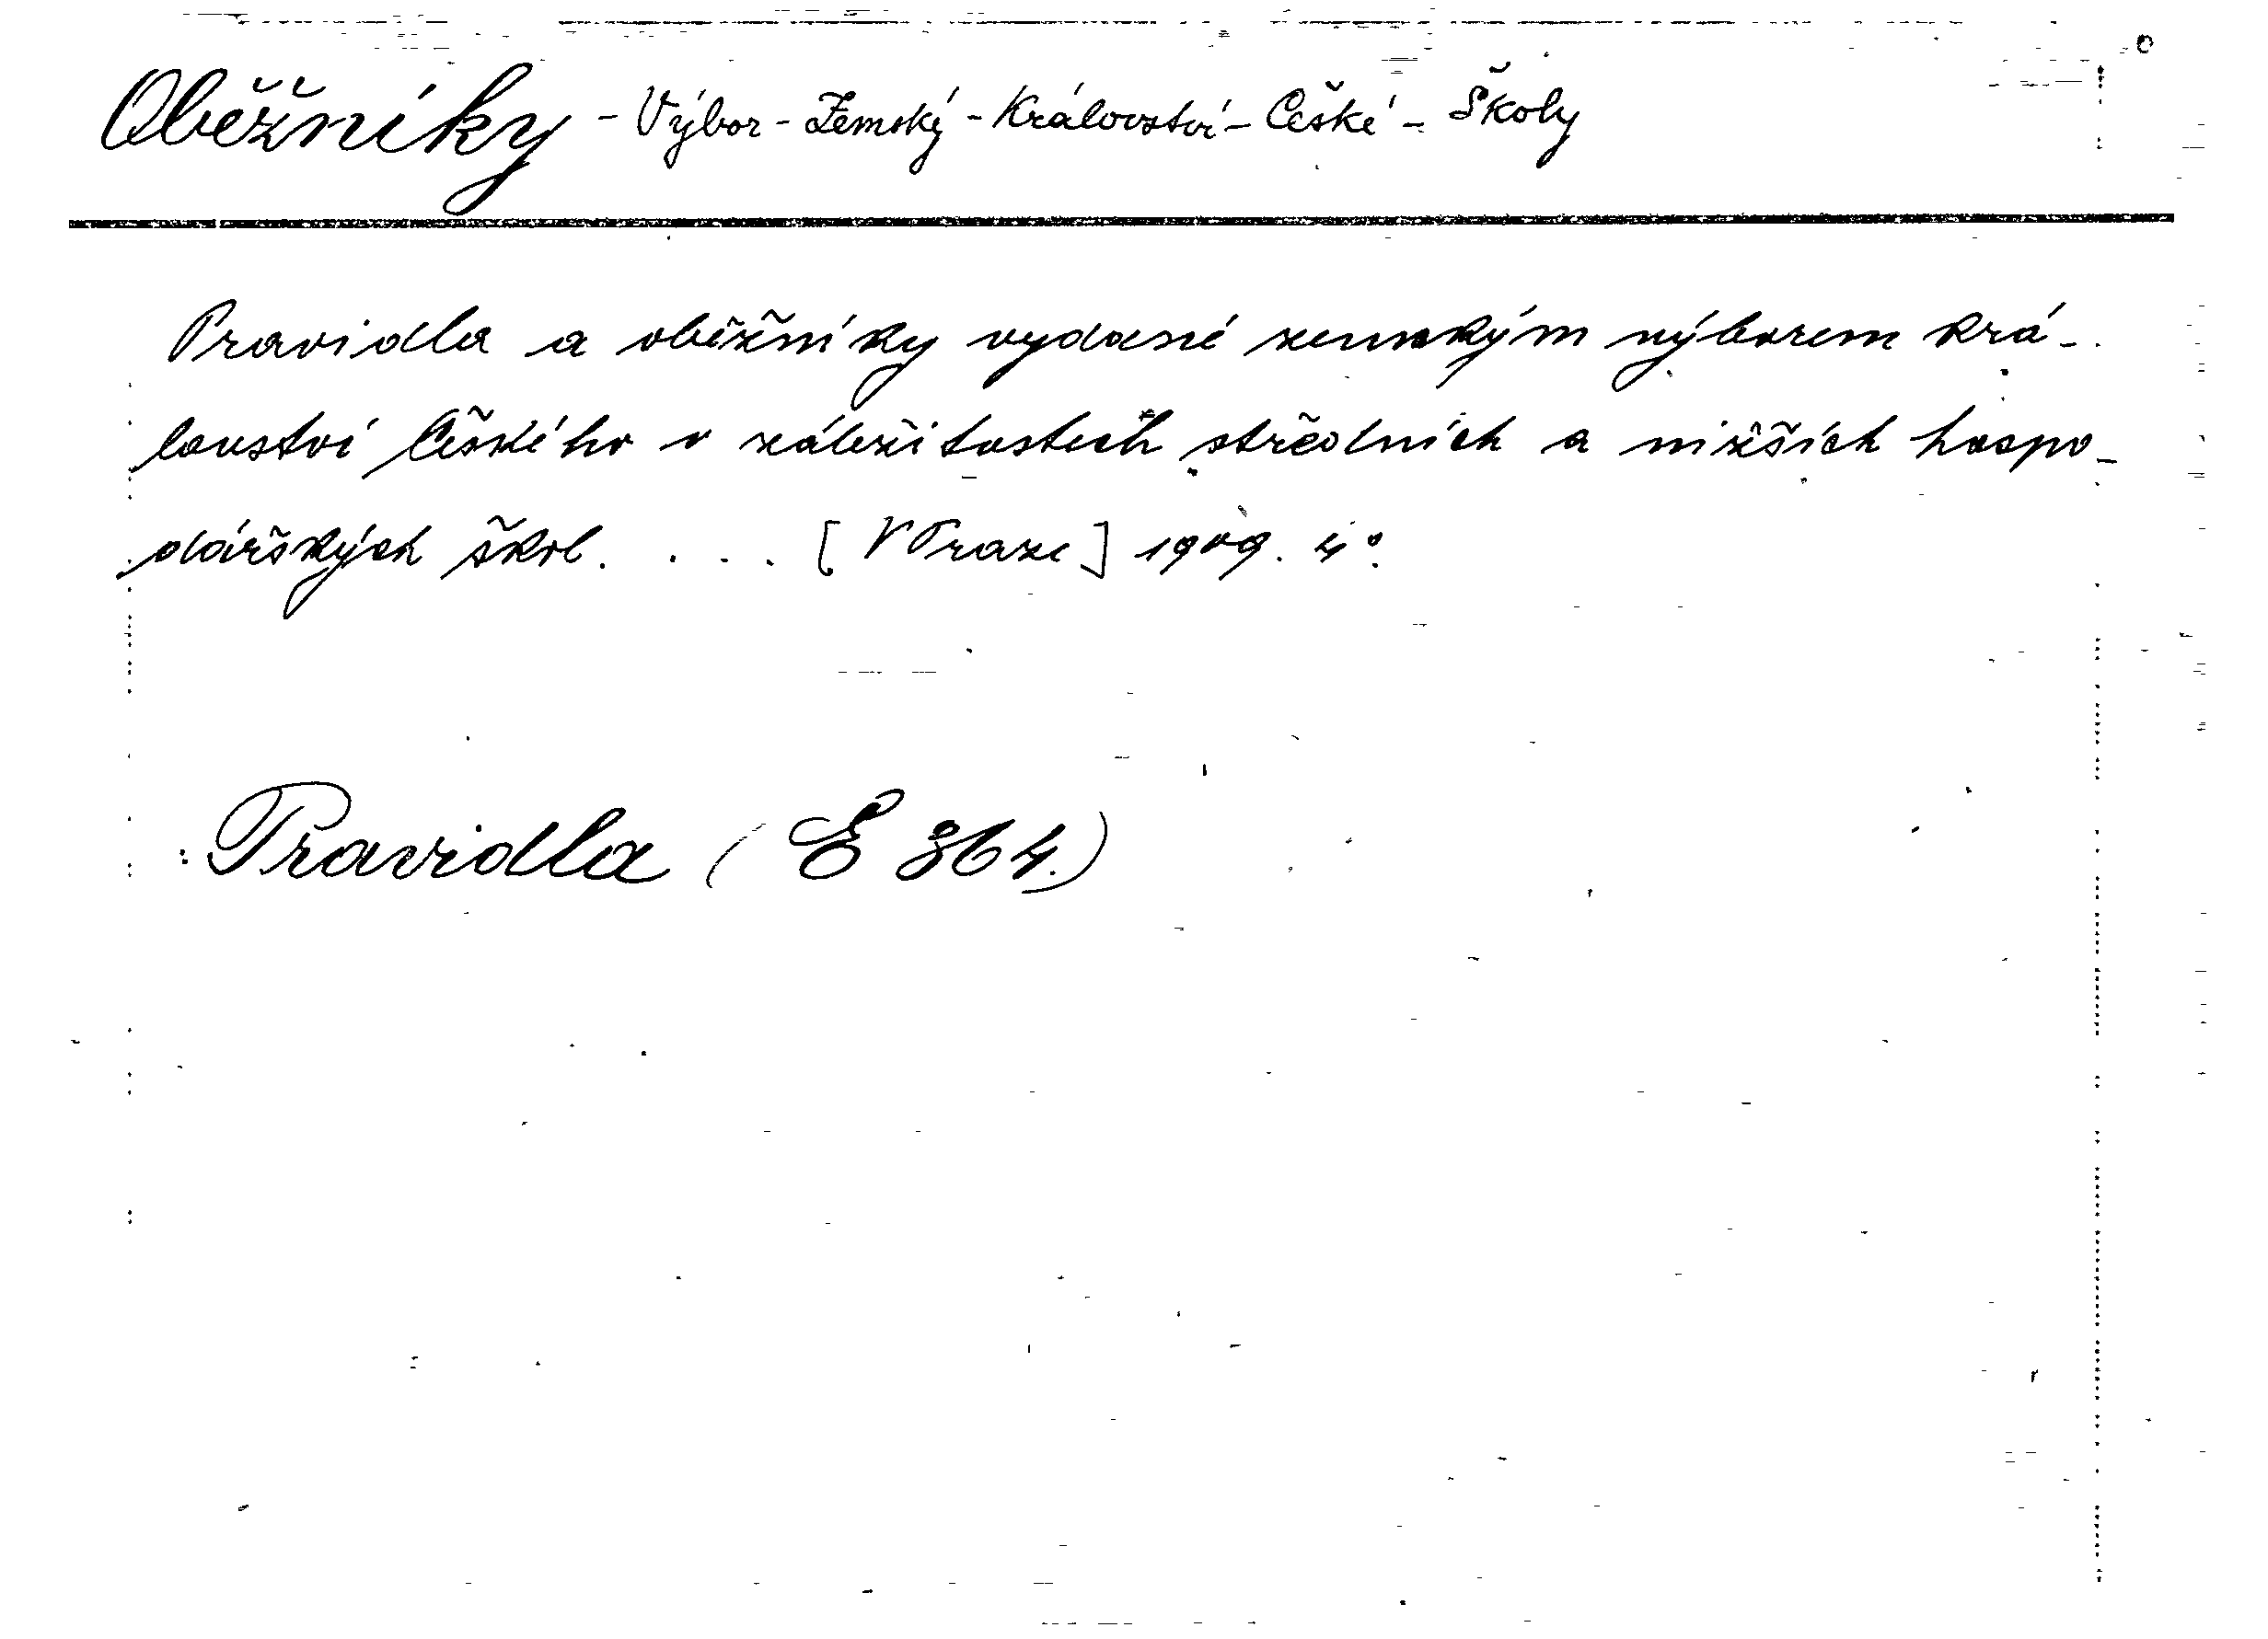 Oběžníky - Výbor - Zemský - Království - České - Školy
Pravidla a oběžníky vydané zemským výborem krá-
lovství Českého v záležitostech středních a nižších hospo-
dářských škol. . . . [V Praze] 1909. 4°.
Pravidla (E 364.)